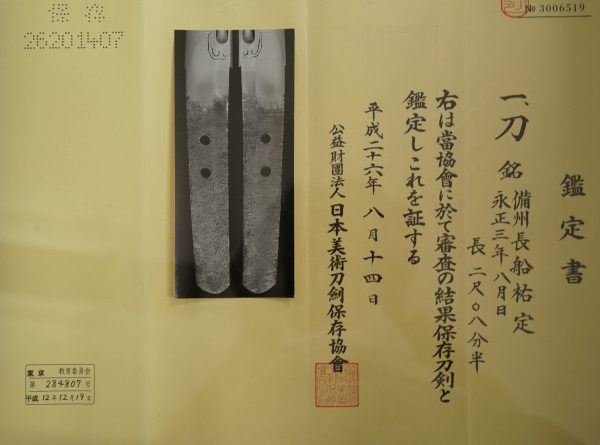 鑑定書
一、刀 銘 備州長船祐定
永正三年八月日
長 二尺〇八分半
右は當協會に於て審査の結果保存刀剣と
鑑定しこれを証する
平成二十六年 八月十四日
公益財團法人 日本美術刀劍保存協會
№ 3006519
保存
26201407
東京 教育委員会
第 284807 号
平成 12年12月19日